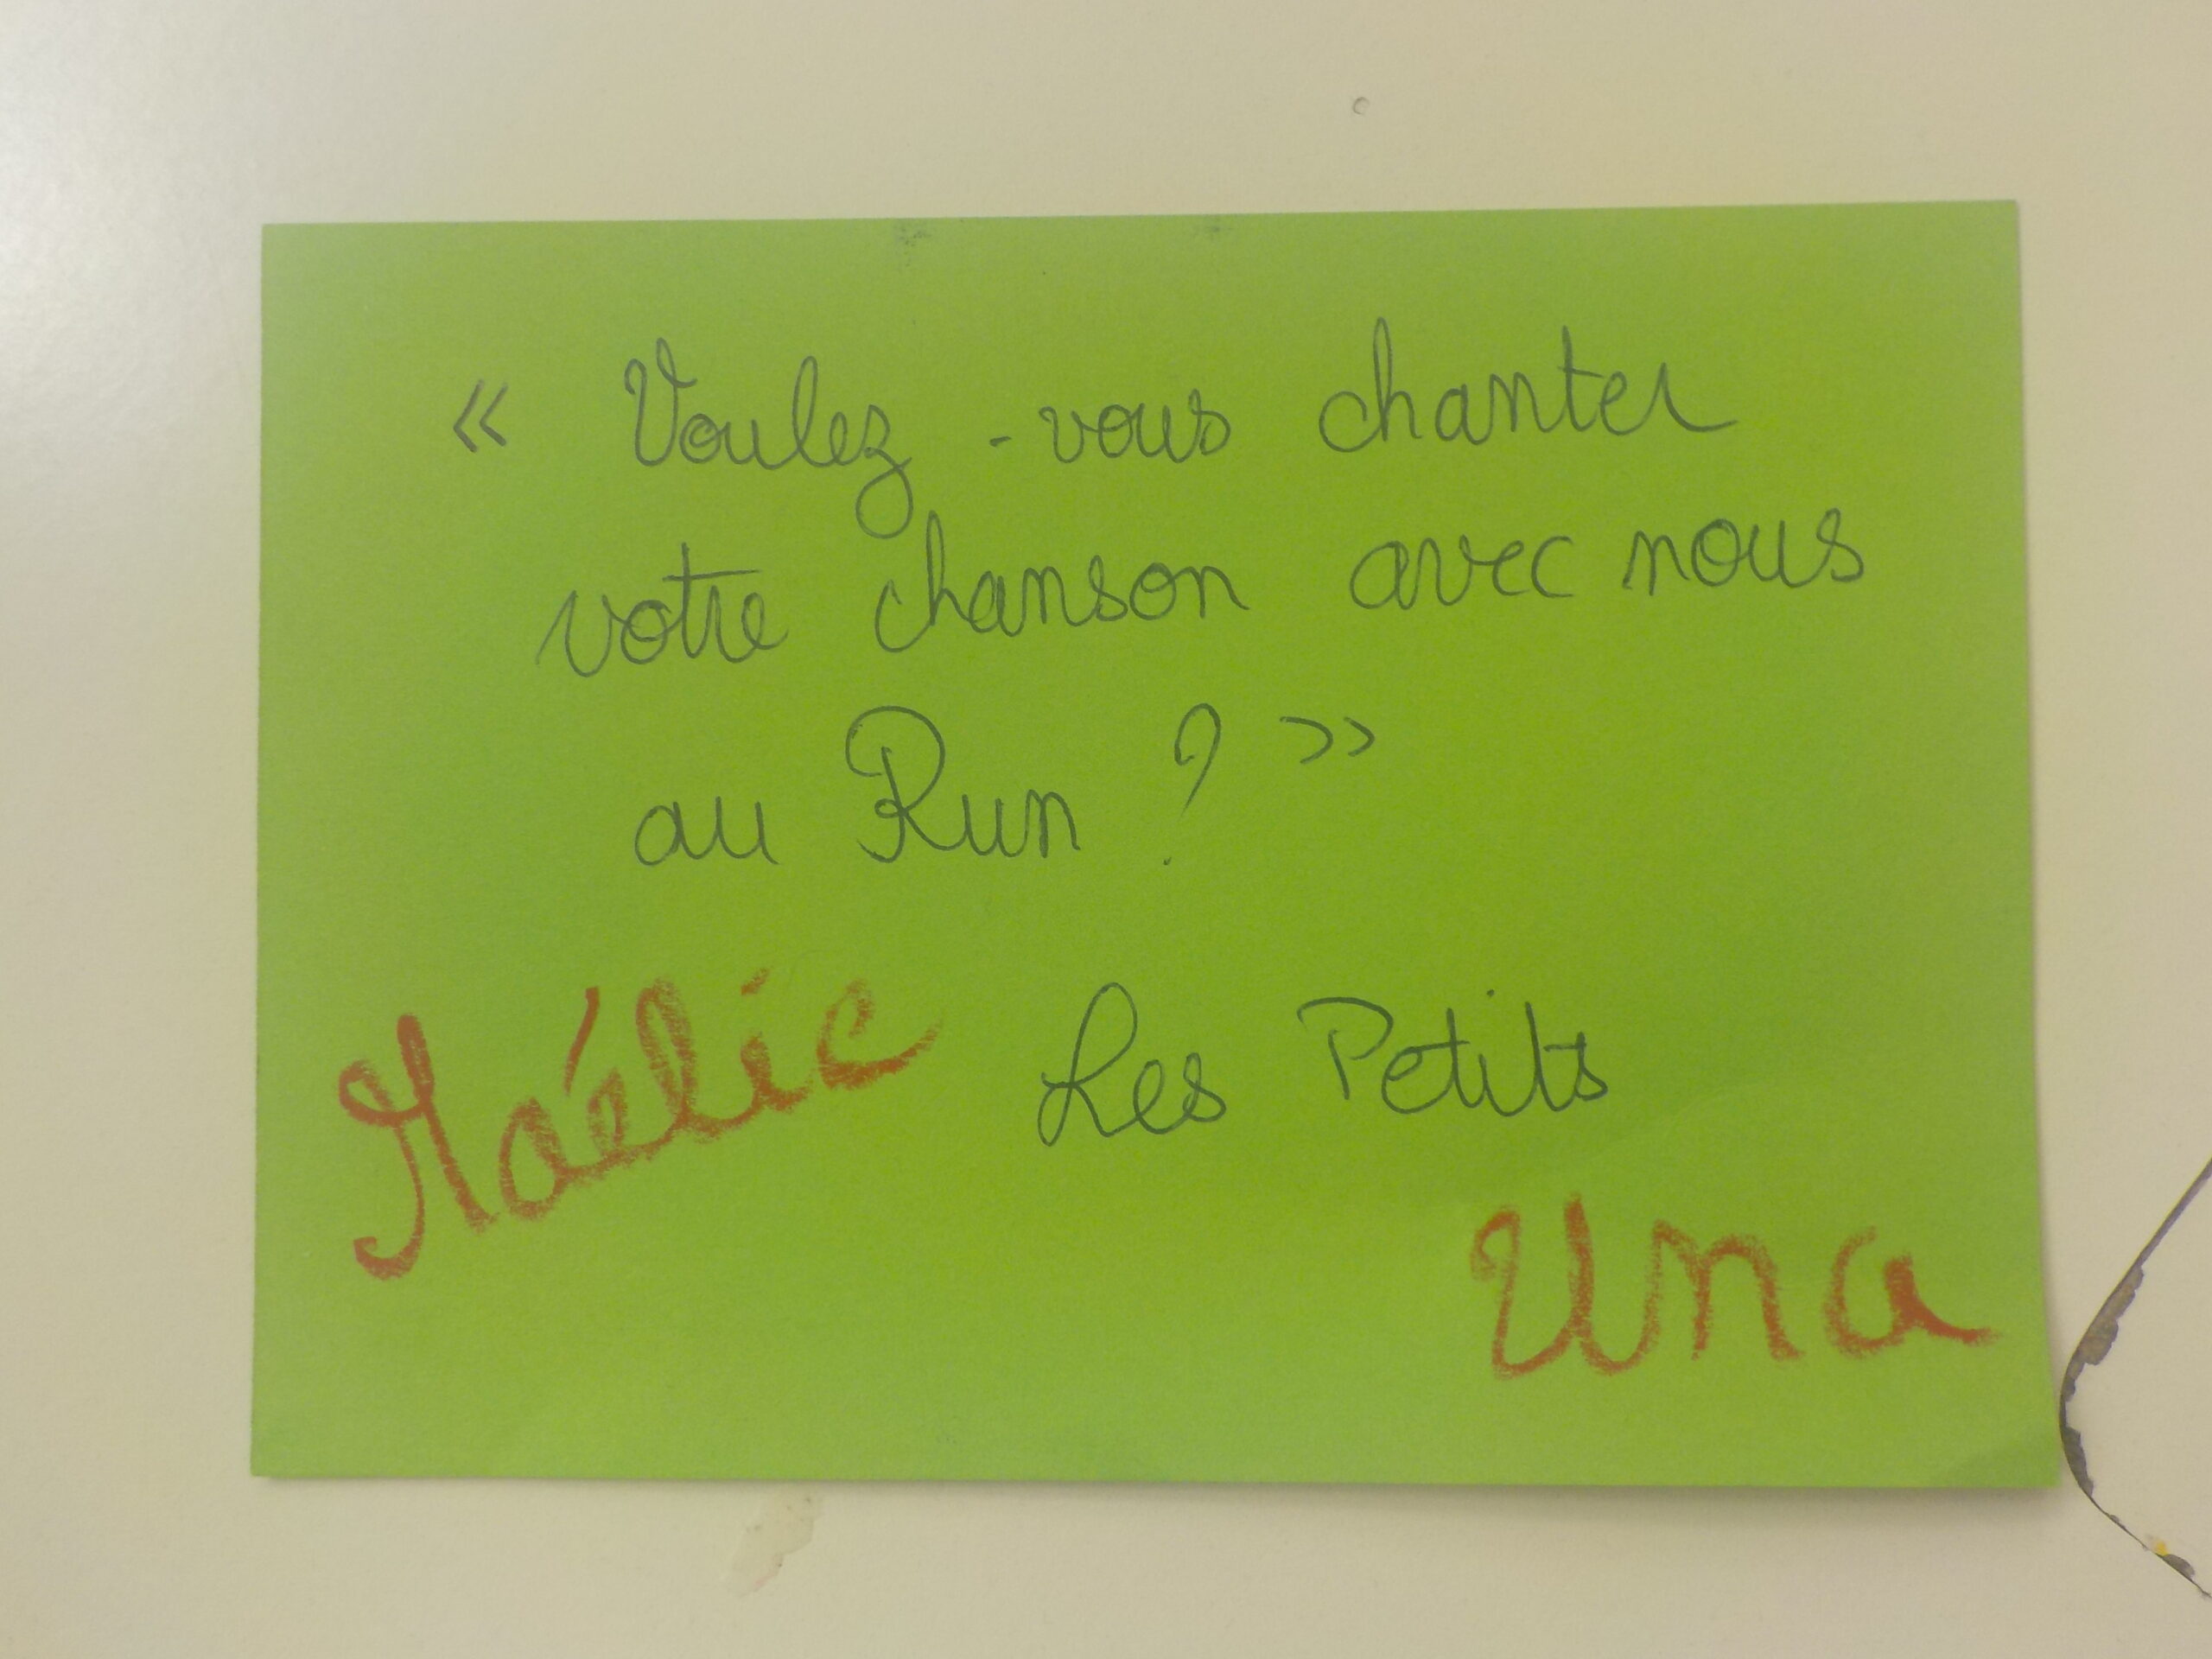 « Voulez-vous chanter
votre chanson avec nous
au Run ? »
Maélic Les Petits
Una